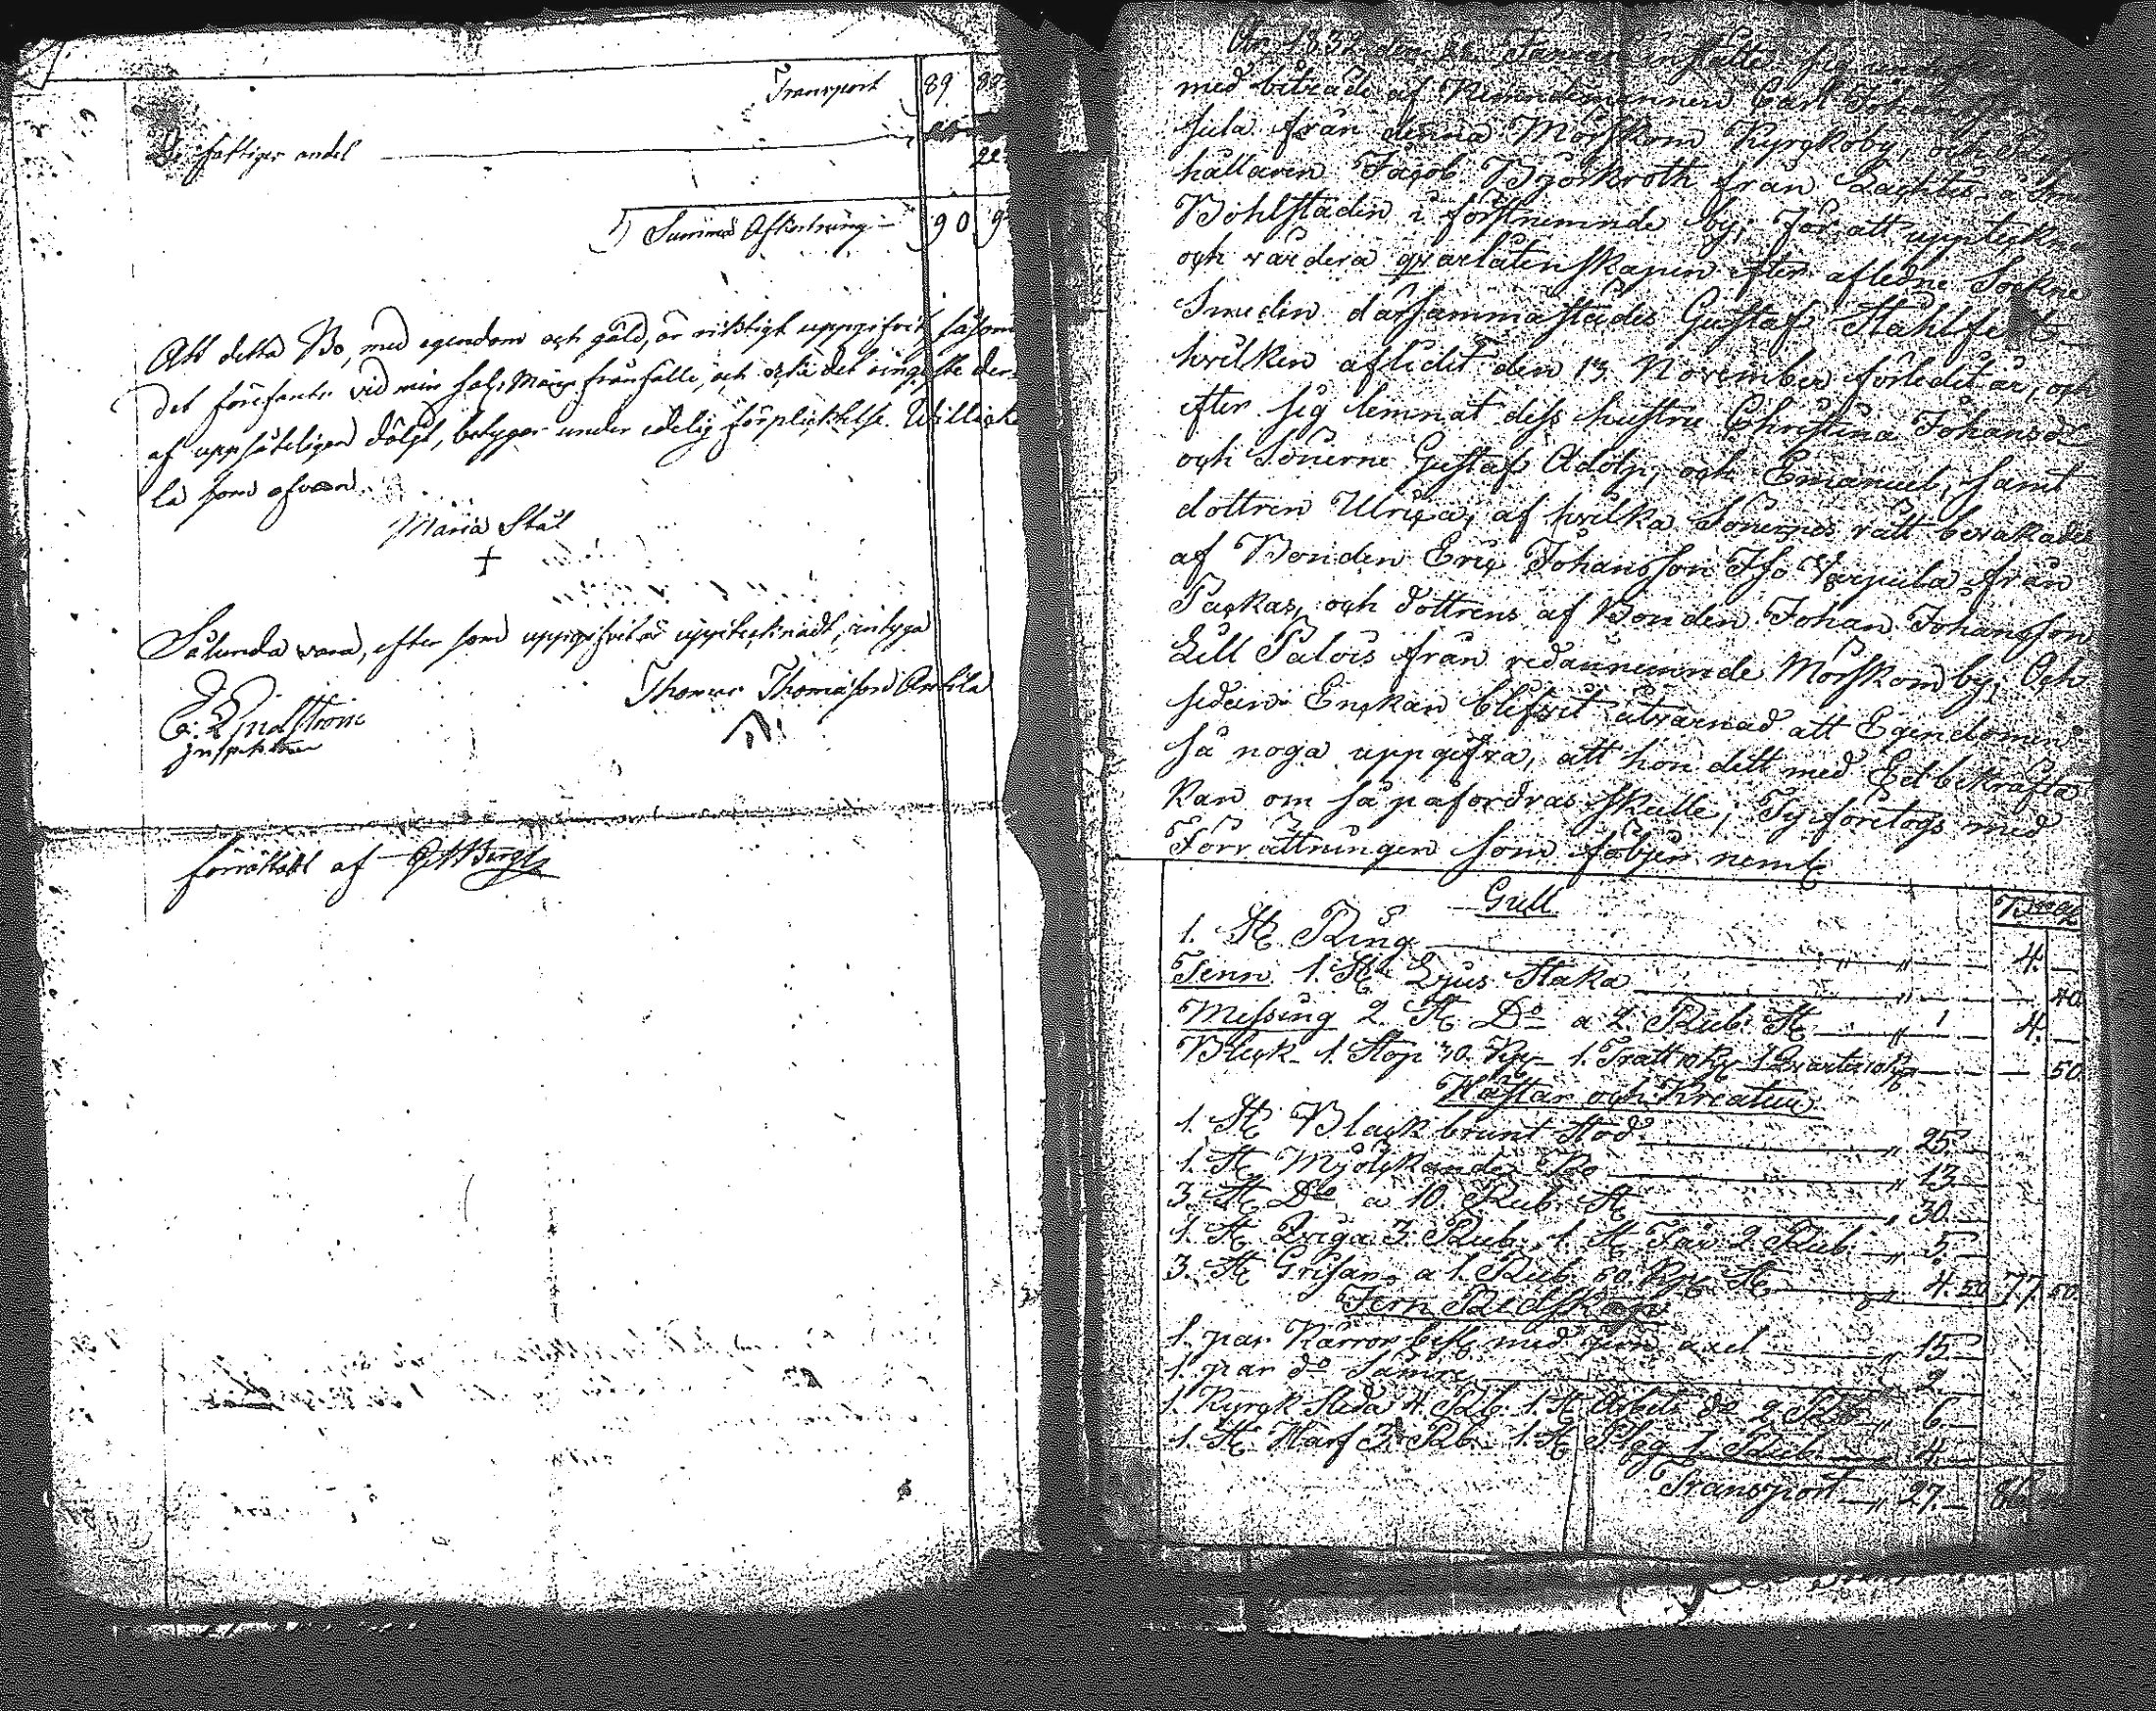 Transport 89 80
De fattiges andel
22
Summa Afkortning 90 9
Att detta Bo, med egendom och gäld, är riktigt uppgifvit, såsom
detförefants vid min Sal. Mans frånfälle, och icke det ringaste der-
af uppsåteligen döljt, betygar under edelig förplicktelse. Willickala
som ofvan.
Maria Stål
+
Sålunda vara, efter som uppgifvit är uppteknadt, intyga
E. Lindström Thomas Thomasson Anttila
Inspektor
förrättadt af
År 1832 den Januari instälte sig
med biträde af Nemndemannen Carl Johan
sula från denna Mörskom Kyrgkoby, och
hållaren Jacob Björkroth från Lachtis
Bohlstaden i förstnemnde by; För att uppteckna
och värdera qvarlåtenskapen efter afledne Sockne
Smeden därsammastädes Gustaf Stahlfelt
hvilken aflidit den 13 November förledit år, och
efter sig lemnat dess hustru Christina Johansdr
och Sönerne Gustaf Adolp, och Emanuel, samt
dottren Ulrica, af hvilka Sönernes rätt bevakades
af Bonden Eric Johansson Iso Varpula från
Packas, och dottrens af Bonden Johan Johansson
Lill Palois från redannemnde Mörskom by; Och
sedan Enckan blifvit åtvarnad att Egendomen
så noga uppgifva, att hon dett med Ed bekräfta
kan om så påfordras skulle; Ty företogs med
Förrättningen som följer neml
Gull
1. St Ring 4.
Tenn 1. St Ljus Staka 40
Messing 2 St Do a 2 Rub. St 4.
Bleck 1. Stop 30. Kpk 1. Tratt 10 Kpk 1 Qvarter 10 Kpk 50
Hästar och Kreatur
1. St Black brunt Stod 25.
1. St Mjölckande Ko 13.
3. St Do a 10. Rub. St 30.
1. St Qviga 3. Rub. 1. St Får 2 Rub. 5.
3. St Grisar a 1. Rub. 50. Kpk St 4.50 77.50.
Jern Redskap
1. par Kärror besl. med jern axel 15
1. par do Sämre 2.
1. Kyrgk Släda 4. Rb. 1. St Arbets do 2 Rub. 6.
1. St Harf 3. Rb. 1. St Plog 1 Rub. 4.
Transport 27. 86